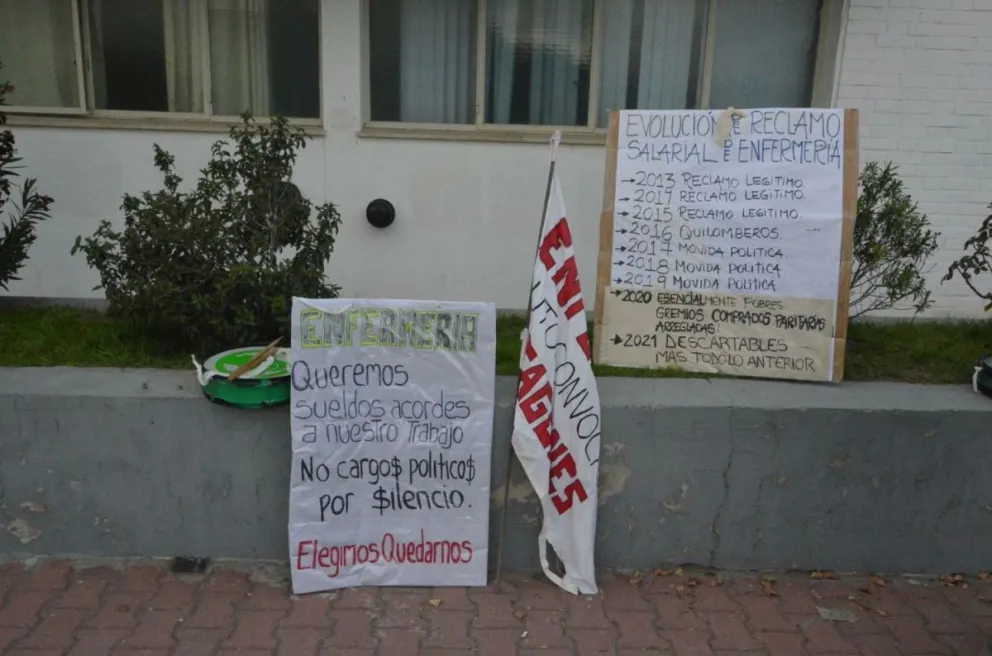 ENFERMERIA
Queremos
sueldos acordes
a nuestro Trabajo
No cargo$ politico$
por $ilencio.
Elegimos Quedarnos
EVOLUCIÓN DE RECLAMO
SALARIAL DE ENFERMERÍA
→2013 RECLAMO LEGITIMO
→2017 RECLAMO LEGITIMO.
→2015 RECLAMO LEGITIMO.
→2016 QUILOMBEROS.
→2017 MOVIDA POLITICA.
→2018 MOVIDA POLITICA
→2019 MOVIDA POLITICA
→2020 ESENCIALMENTE POBRES
GREMIOS COMPRADOS PARITARIAS
ARREGLADAS
→2021 DESCARTABLES
MAS TODO LO ANTERIOR